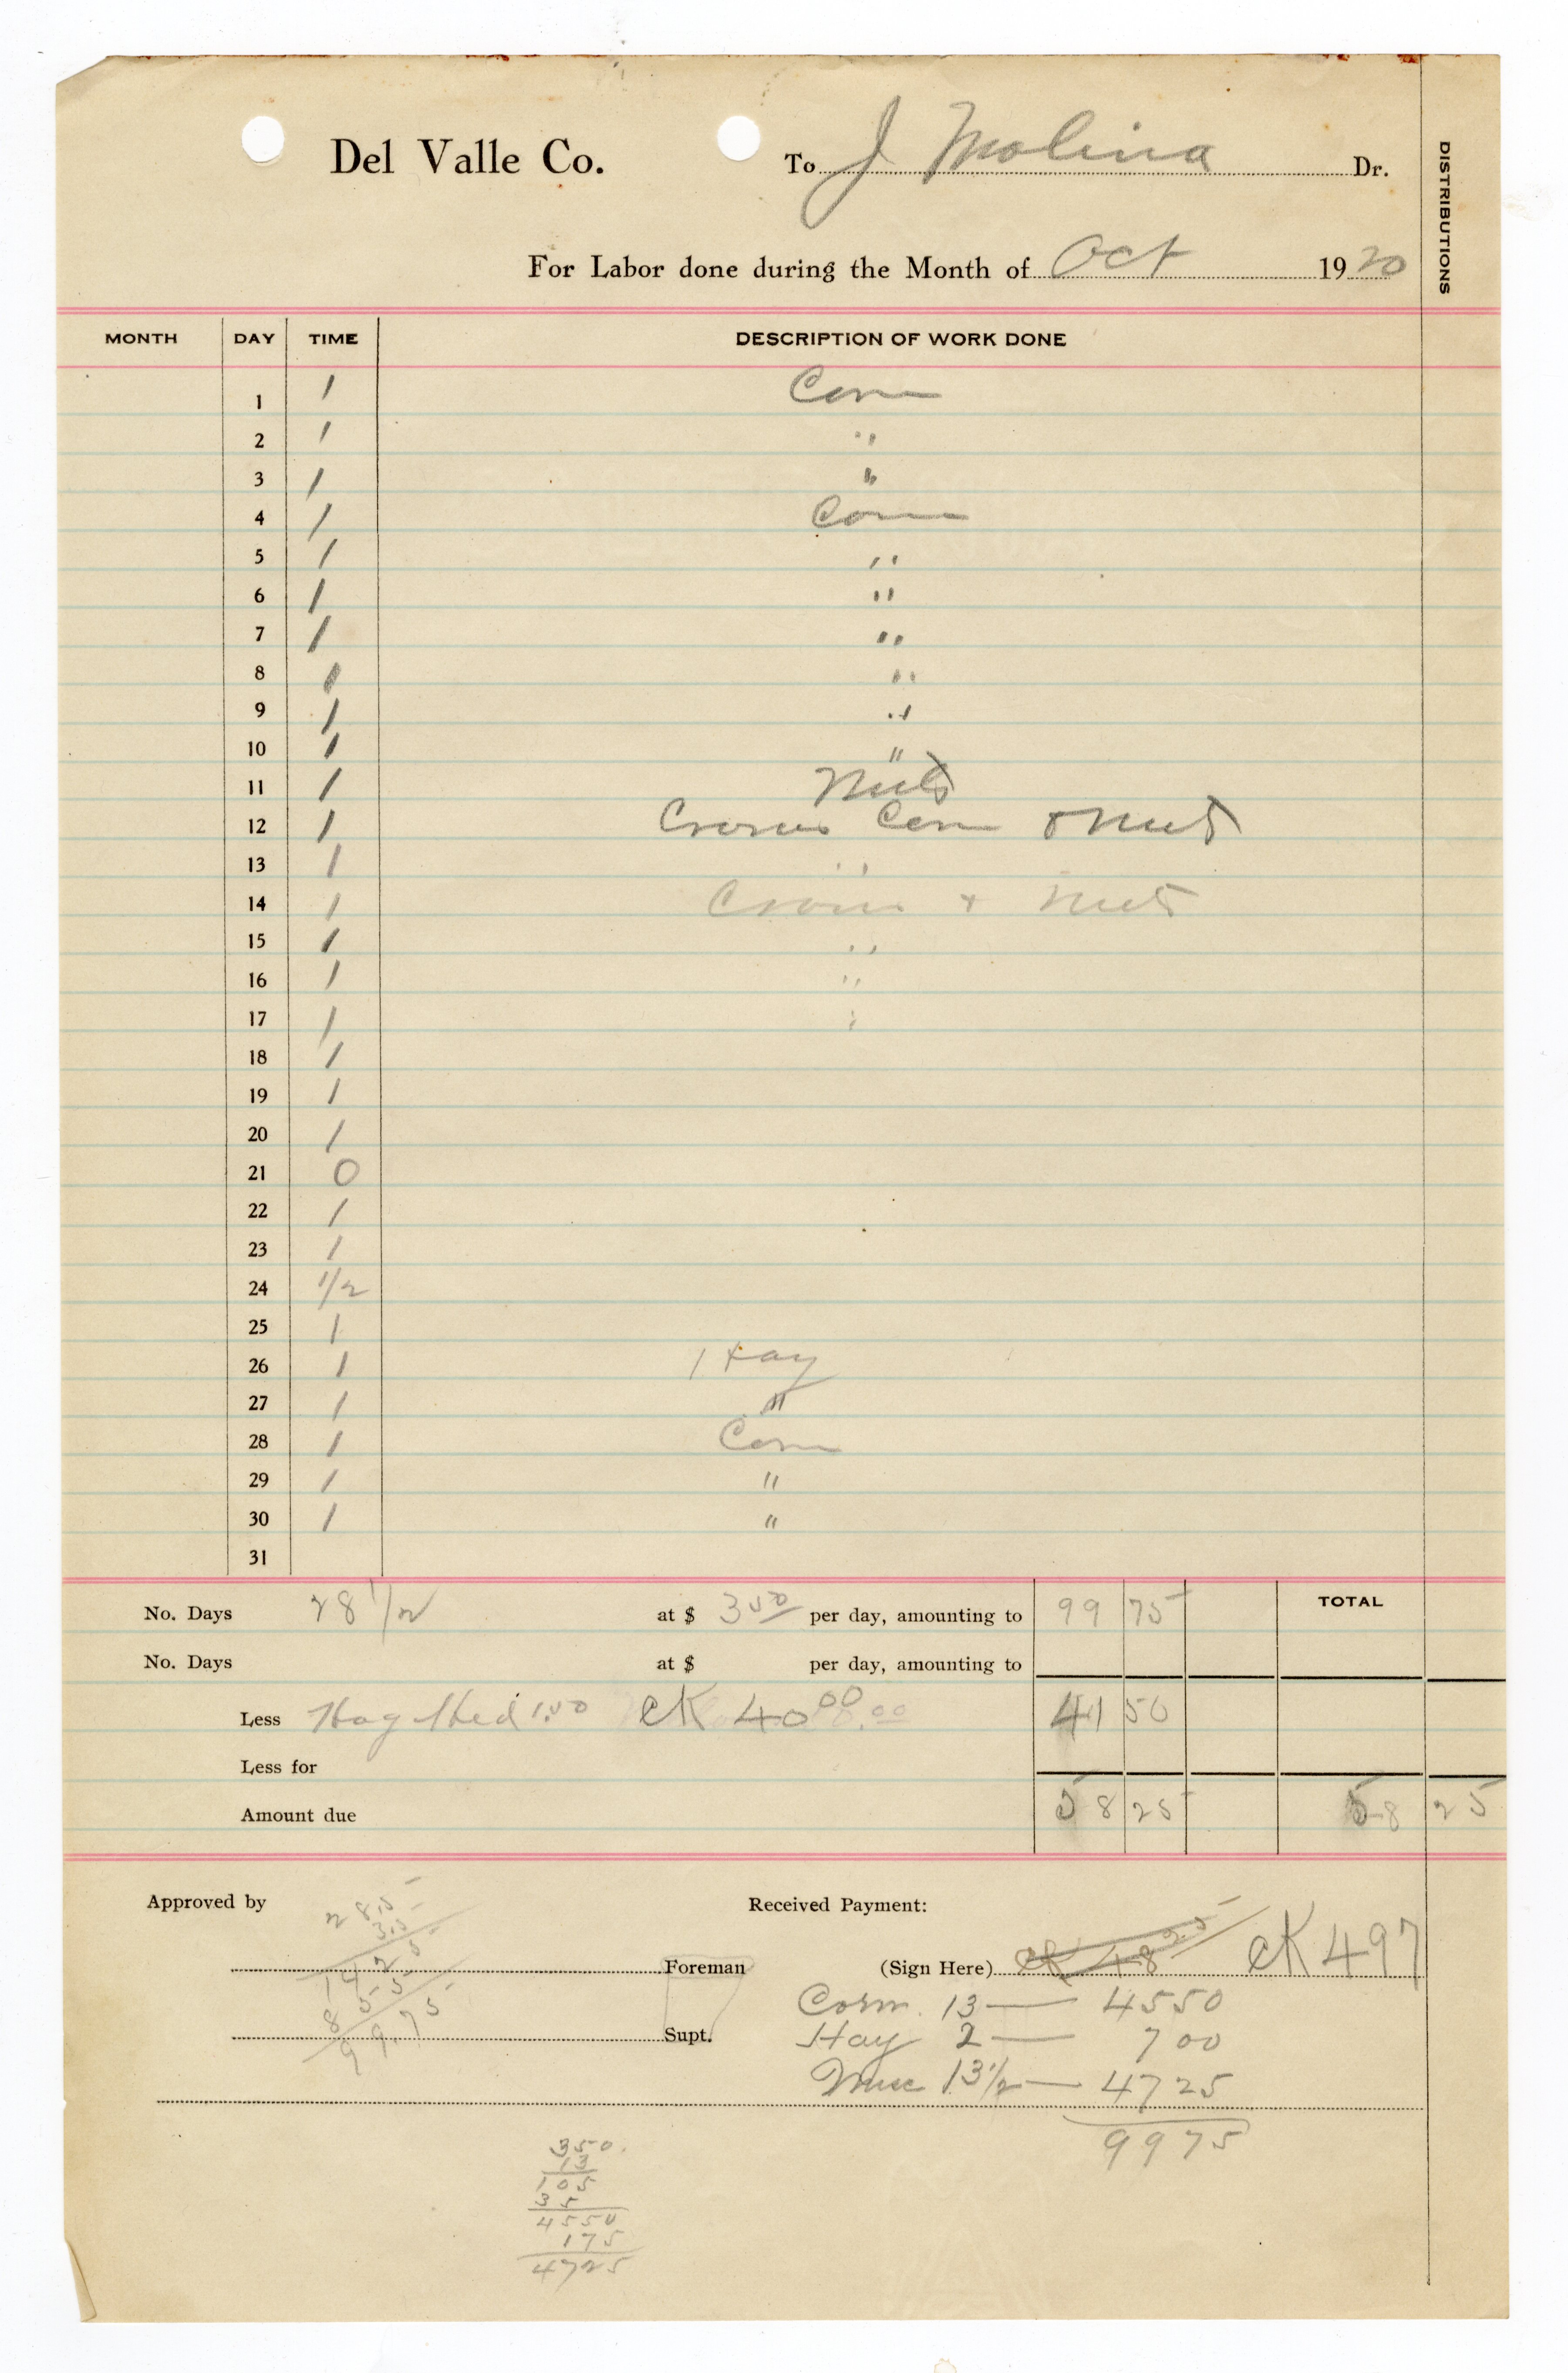 Del Valle Co. To J Molina Dr.
DISTRIBUTIONS
For Labor done during the Month of Oct 1920
MONTH DAY TIME DESCRIPTION OF WORK DONE
1 1 Corn
2 1 "
3 1 "
4 1 Corn
5 1 "
6 1 "
7 1 "
8 1 "
9 1 "
10 1 "
11 1 Nuts
12 1 Corn & Nuts
13 1 "
14 1 & Nuts
15 1 "
16 1 "
17 1 "
18 1
19 1
20 1
21 0
22 1
23 1
24 1/2
25 1
26 1 Hay
27 1 "
28 1 Corn
29 1 "
30 1 "
31
No. Days 28 1/2 at $ 3 50 per day, amounting to 99 75 TOTAL
No. Days at $ per day, amounting to
Less 1.50 CK 40 00 41 50
Less for
Amount due 58 25 58 25
Approved by Received Payment:
28.5
3.5
1425
855
99.75
Foreman (Sign Here) CK 48 25 CK 497
Corn. 13 — 4550
Supt. Hay 2 — 700
Misc 13 1/2 — 4725
9975
350.
13
105
35
4550
175
4725